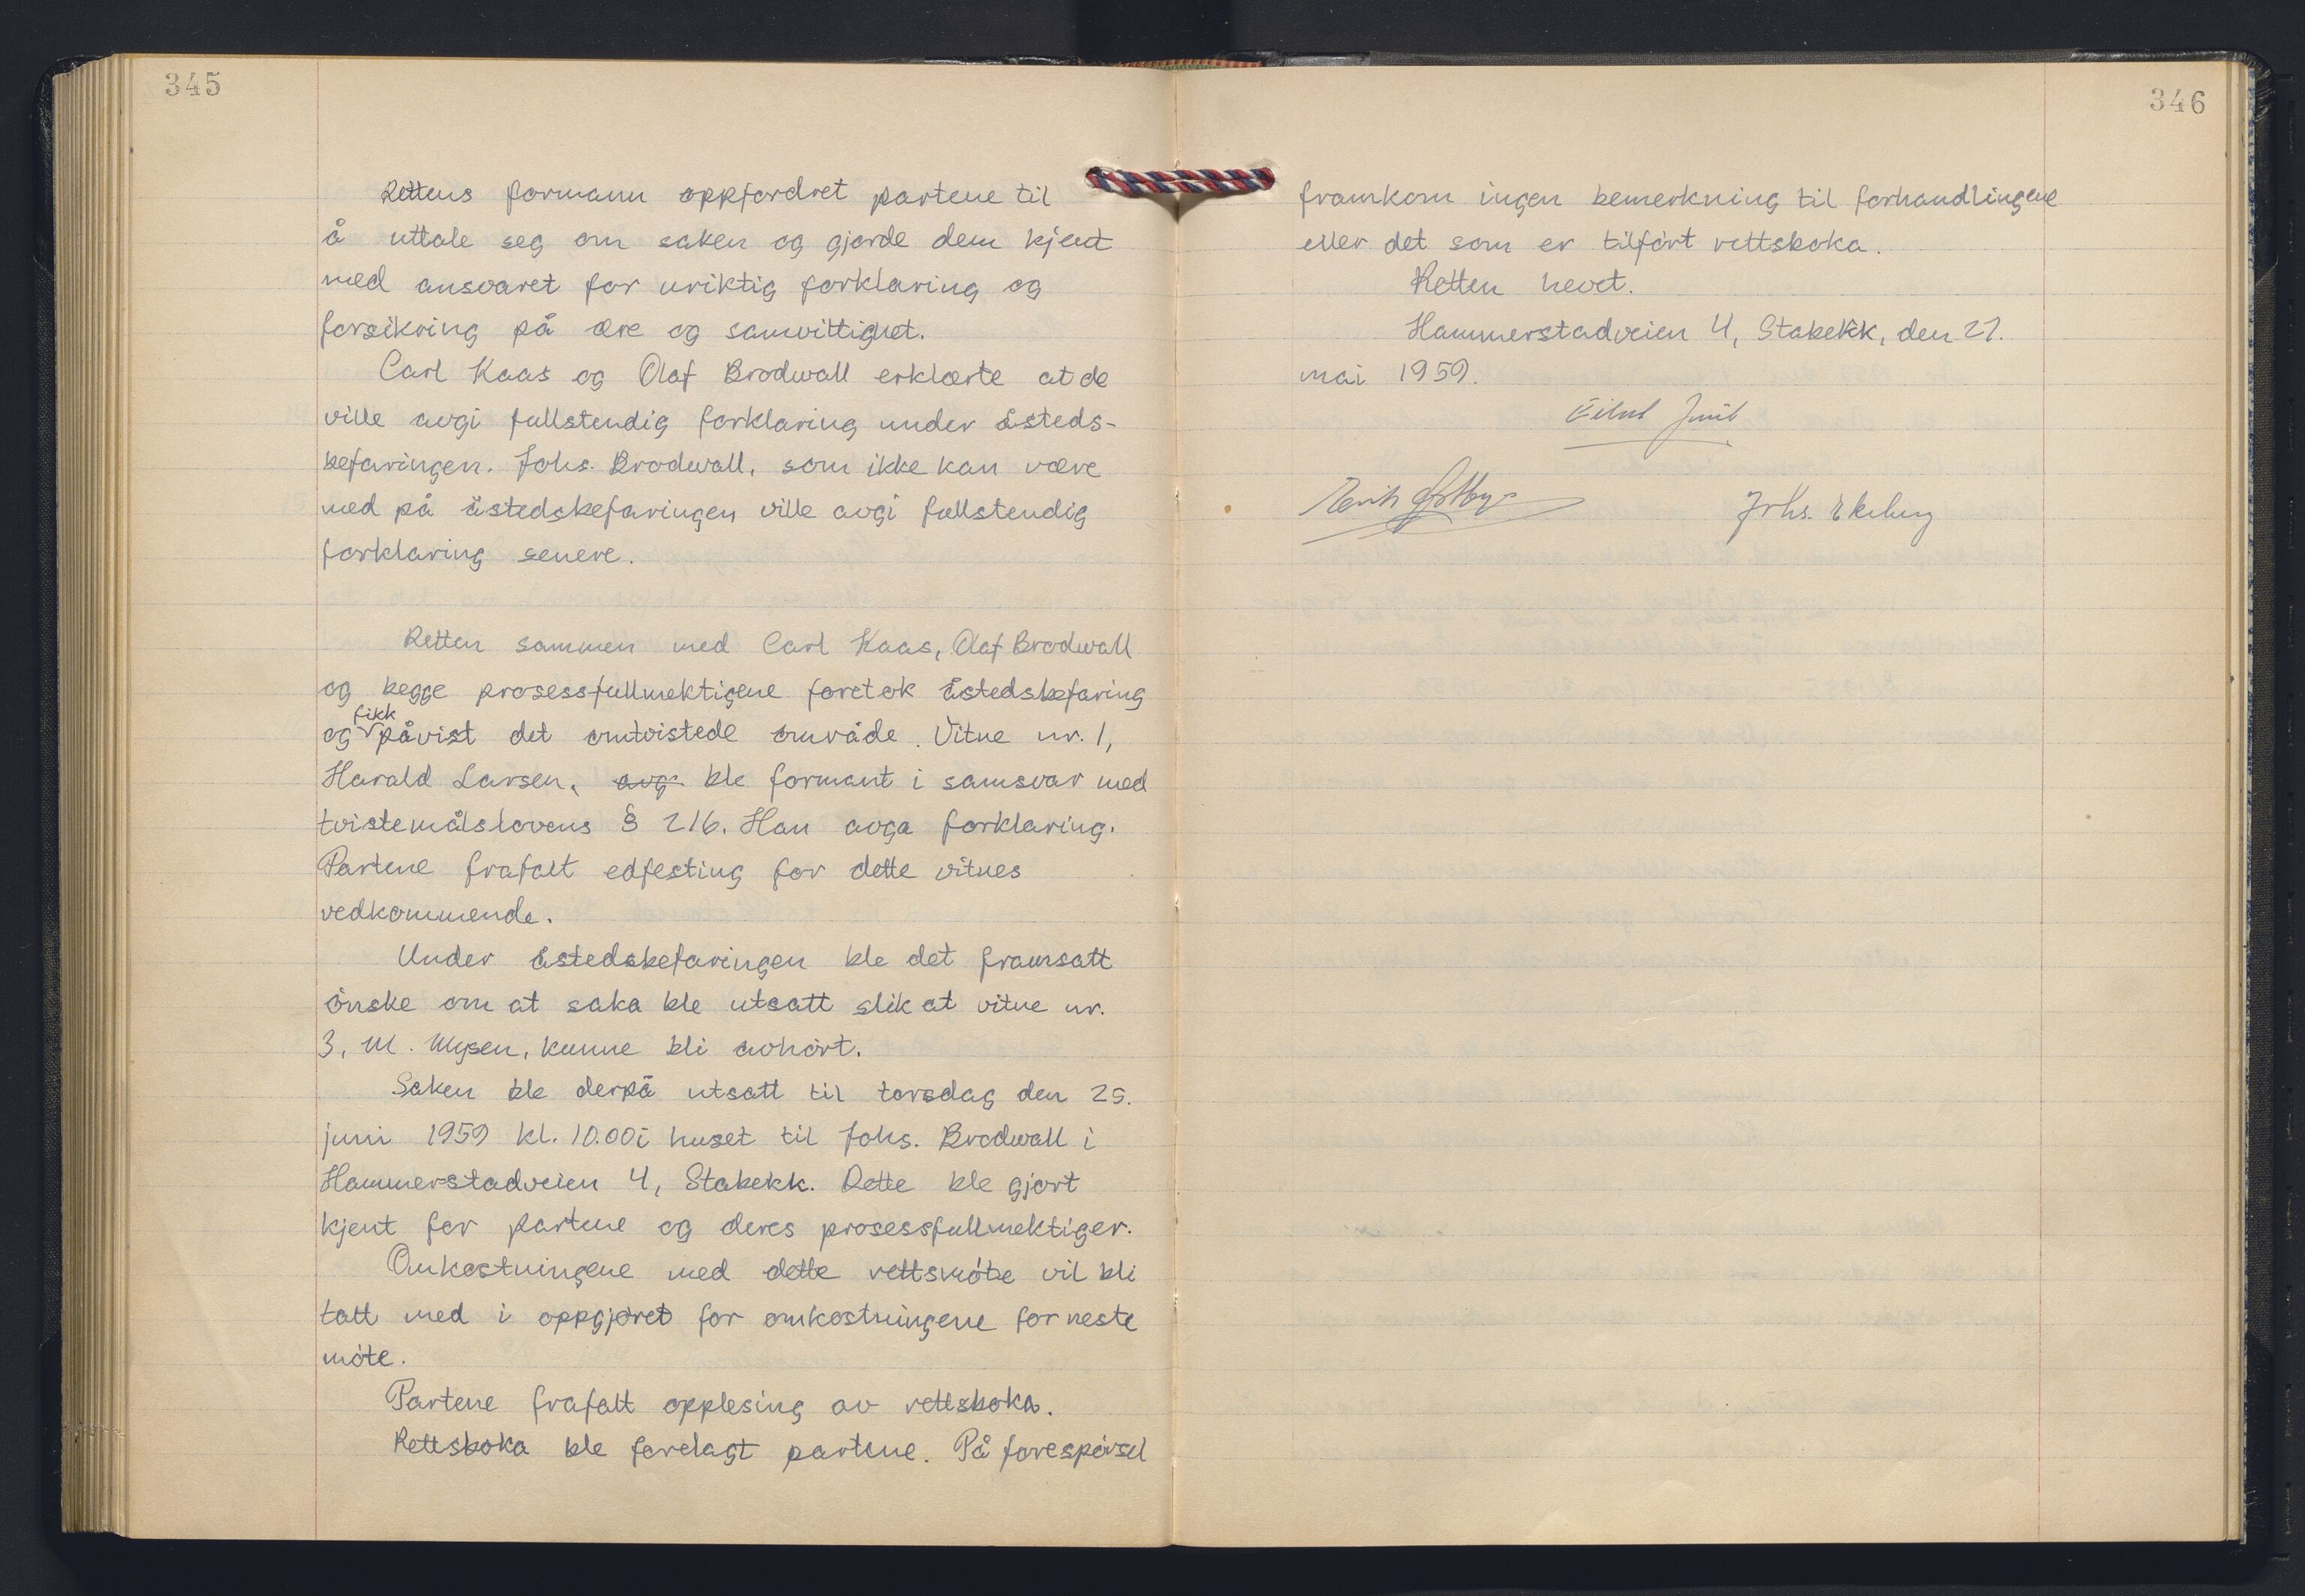 345
Rettens formann oppfordret partene til
å uttale seg om saken og gjorde dem kjent
med ansvaret for uriktig forklaring og
forsikring på ære og samvittighet.
Carl Kaas og Olaf Brodwall erklærte at de
ville avgi fullstendig forklaring under åsteds-
befaringen. Johs. Brodwall, som ikke kan være
med på åstedsbefaringen ville avgi fullstendig
forklaring senere.
Retten sammen med Carl Kaas, Olaf Brodwall
og begge prosessfullmektigene foretok åstedsbefaring
og fikk påvist det omtvistede område. Vitne nr. 1,
Harald Larsen, avg ble formant i samsvar med
tvistemålslovens § 216. Han avga forklaring.
Partene frafalt edfesting for dette vitnes
vedkommende.
Under åstedsbefaringen ble det framsatt
ønske om at saka ble utsatt slik at vitne nr.
3, M. Mysen, kunne bli avhørt.
Saken ble derpå utsatt til torsdag den 25.
juni 1959 kl. 10.00 i huset til Johs. Brodwall i
Hammerstadveien 4, Stabekk. Dette ble gjort
kjent for partene og deres prosessfullmektiger.
Omkostningene med dette rettsmøte vil bli
tatt med i oppgjøret for omkostningene for neste
møte.
Partene frafalt opplesing av rettsboka.
Rettsboka ble forelagt partene. På forespørsel
346
framkom ingen bemerkning til forhandlingene
eller det som er tilført rettsboka.
Retten hevet.
Hammerstadveien 4, Stabekk, den 27.
mai 1959.
Johs. Ekeberg